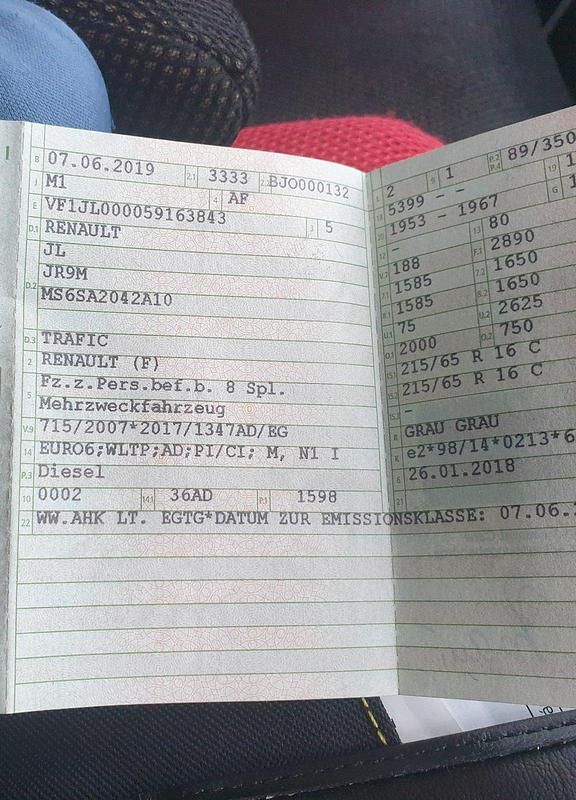 B 07.06.2019 2.1 3333 2.2 BJO000132
J M1 4 AF
E VF1JL000059163843 3 5
D.1 RENAULT
JL
D.2 JR9M
MS6SA2042A10
D.3 TRAFIC
2 RENAULT (F)
5 Fz.z.Pers.bef.b. 8 Spl.
Mehrzweckfahrzeug
V.9 715/2007*2017/1347AD/EG
14 EURO6;WLTP;AD;PI/CI; M, N1 I
P.3 Diesel
10 0002 14.1 36AD P.1 1598
22 WW.AHK LT. EGTG*DATUM ZUR EMISSIONSKLASSE: 07.06.2
L 2 9 1 P.2 P.4 89/350
18 5399 - - 19
20 1953 - 1967 G
12 - 13 80
V.7 188 F.1 2890
7.1 1585 7.2 1650
8.1 1585 8.2 1650
U.1 75 U.2 2625
O.1 2000 O.2 750
15.1 215/65 R 16 C
15.2 215/65 R 16 C
15.3 -
R GRAU GRAU
K e2*98/14*0213*6
6 26.01.2018
21